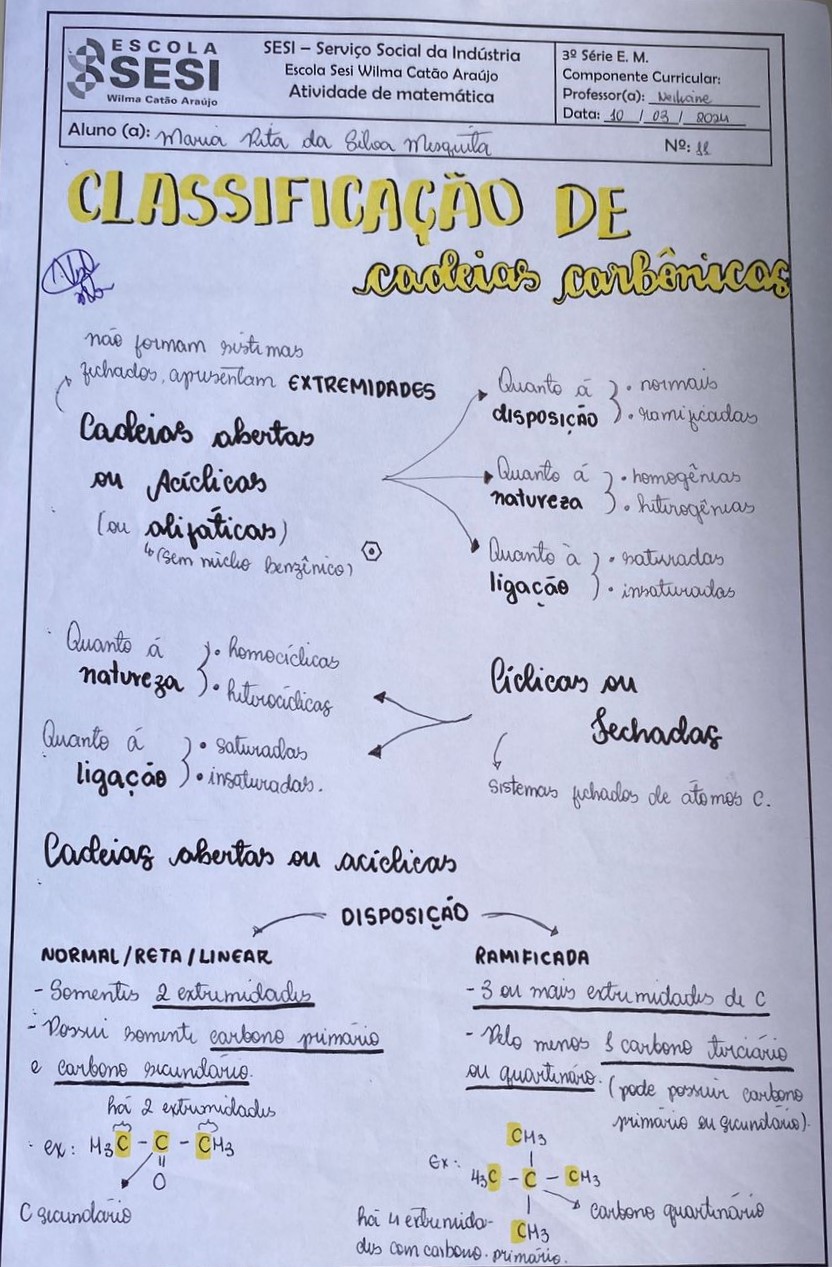 ESCOLA
SESI
Wilma Catão Araújo
SESI – Serviço Social da Indústria
Escola Sesi Wilma Catão Araújo
Atividade de matemática
3º Série E. M.
Componente Curricular:
Professor(a): Neilvine
Data: 10 / 03 / 2024
Aluno (a): Maria Rita da Silva Mesquita
Nº: 22
CLASSIFICAÇÃO DE
cadeias carbônicas
não formam sistemas
fechados, apresentam EXTREMIDADES
Cadeias abertas
ou Acíclicas
(ou alifáticas)
↳ (sem núcleo benzênico)
Quanto á } • normais
disposição } • ramificadas
Quanto á } • homogênias
natureza } • heterogênias
Quanto à } • saturadas
ligação } • insaturadas
Quanto á } • homocíclicas
natureza } • heterocíclicas
Quanto á } • saturadas
ligação } • insaturadas.
Cíclicas ou
fechadas
sistemas fechados de átomos C.
Cadeias abertas ou acíclicas
DISPOSIÇÃO
NORMAL/RETA/LINEAR
- Somentes 2 extremidades
- Possui somente carbono primário
e carbono secundário.
há 2 extremidades
• ex: H3C - C - CH3
=
O
C secundário
RAMIFICADA
- 3 ou mais extremidades de C
- Pelo menos 1 carbono terciário
ou quartenário. (pode possuir carbono
primário ou secundário).
CH3
Ex:
H3C - C - CH3
carbono quartenário
CH3
há 4 extremida-
des com carbono primário.